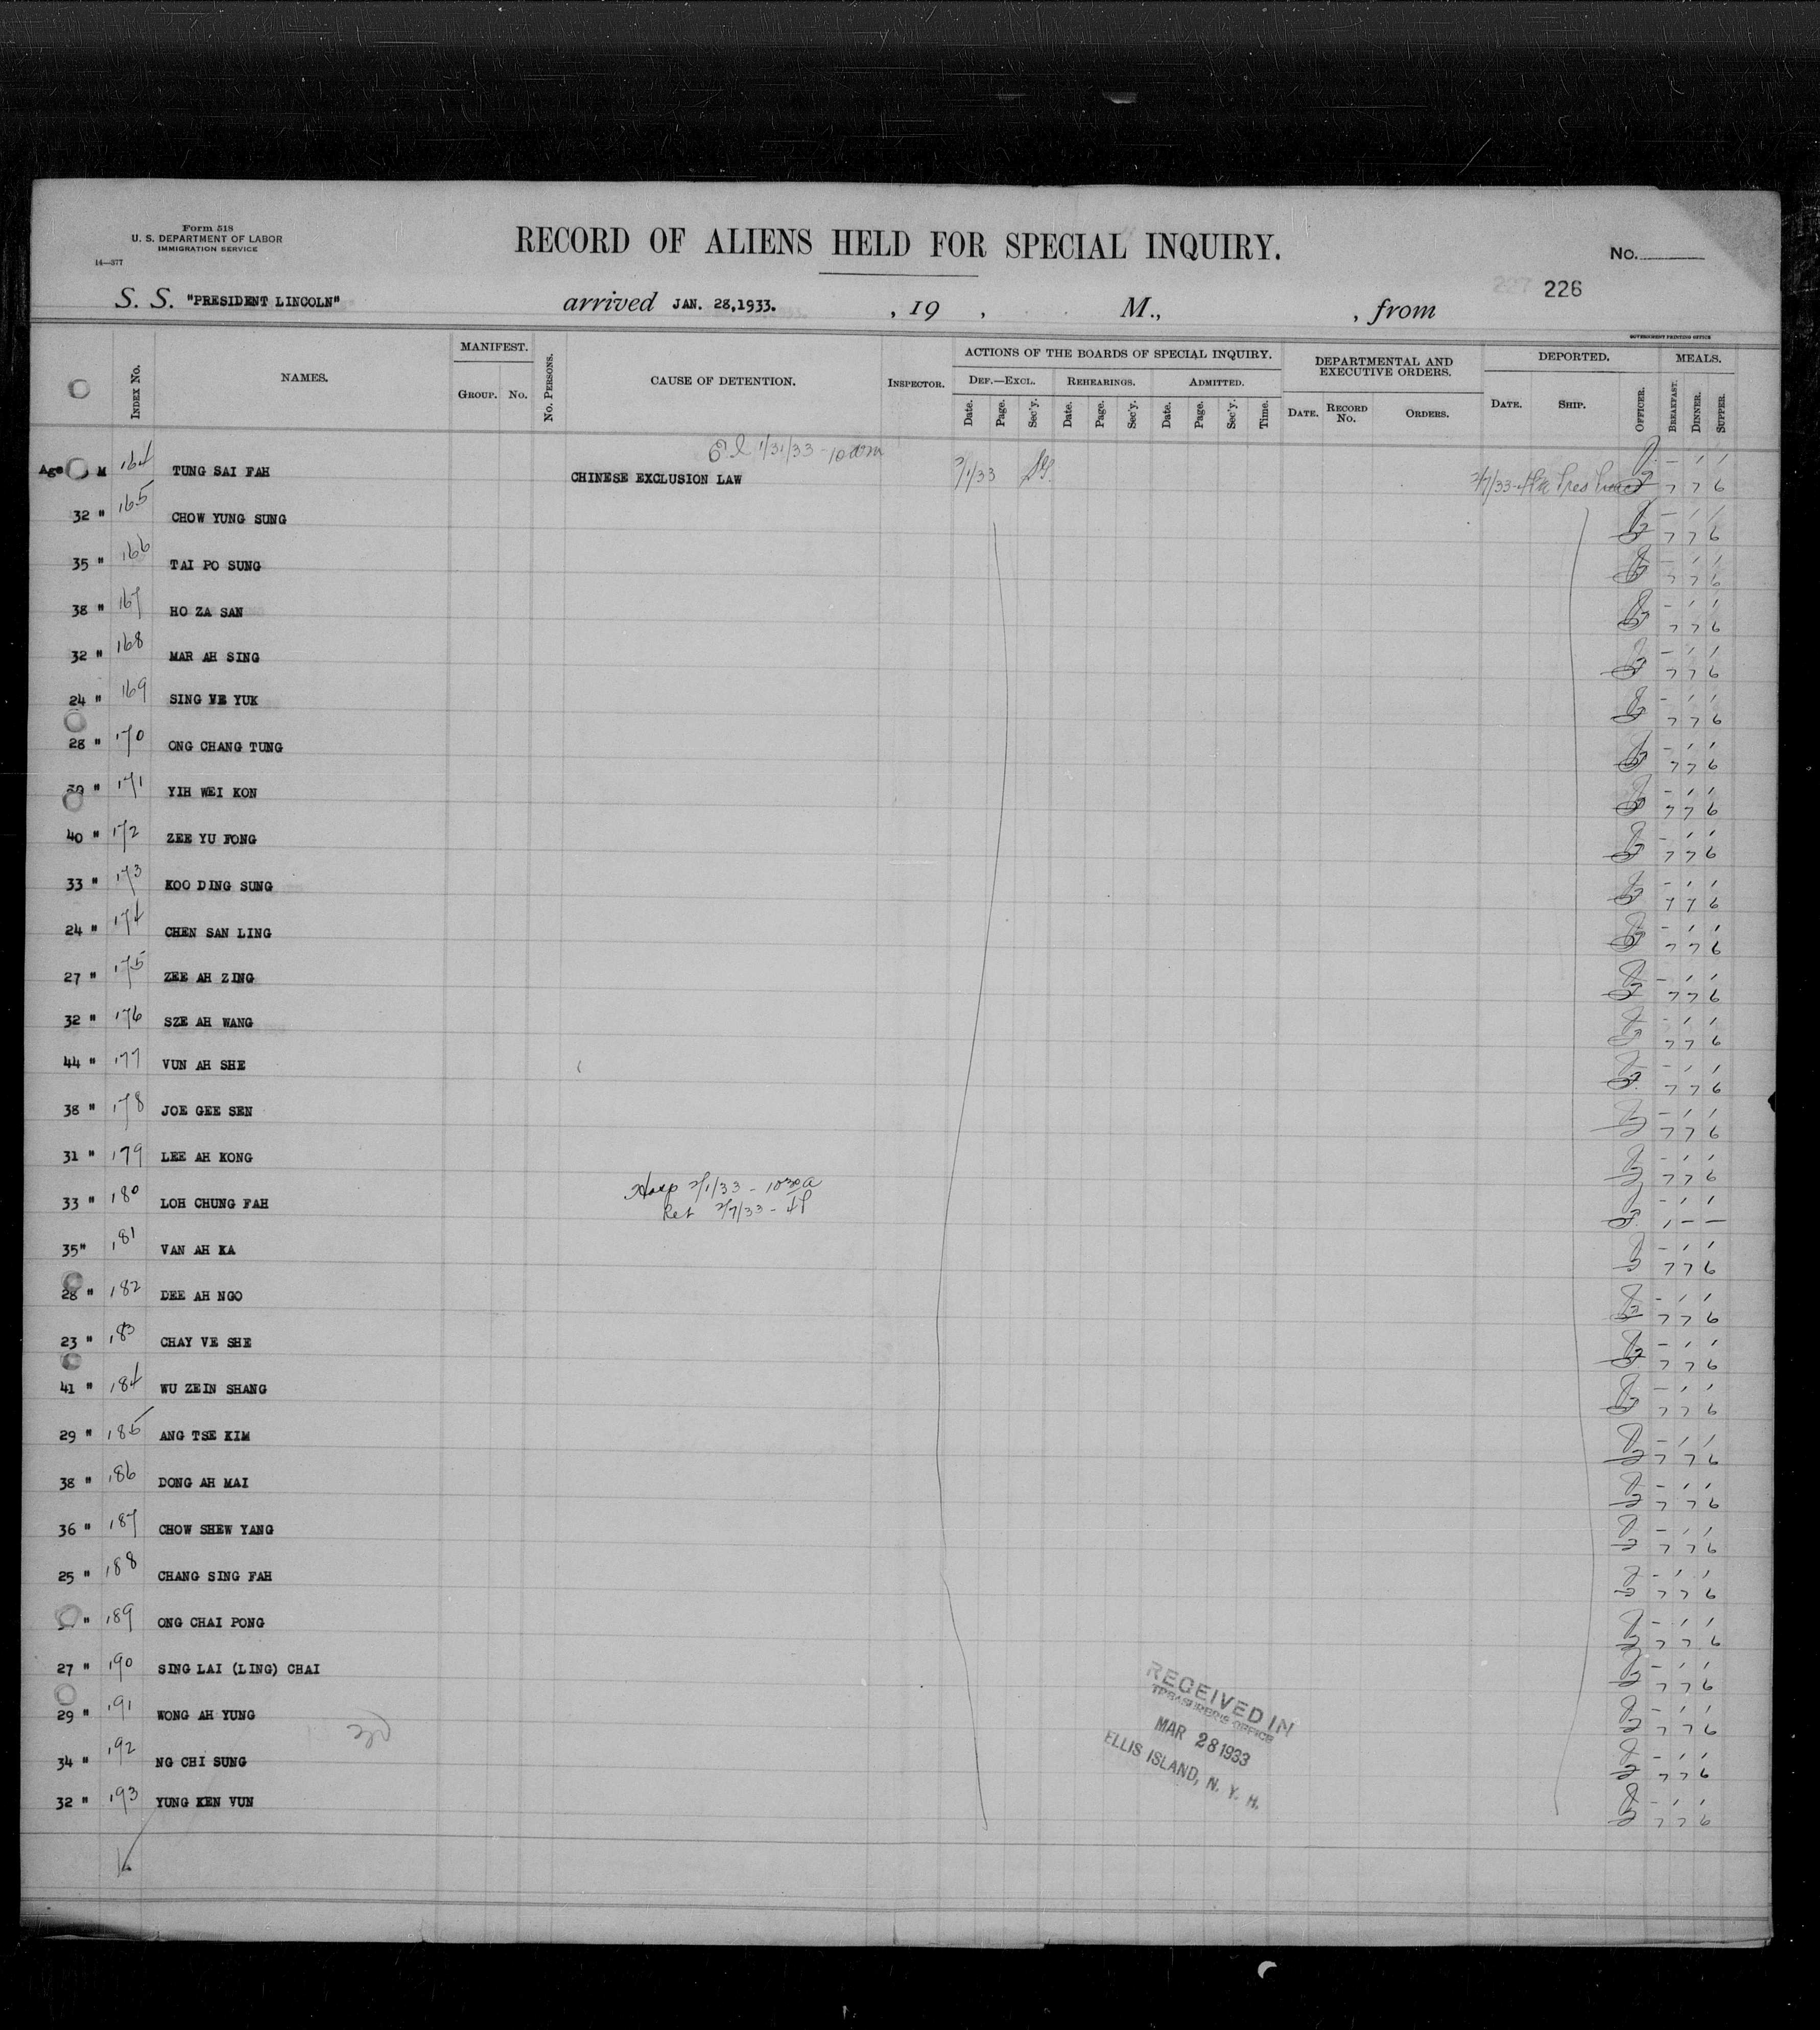 Form 518
U. S. DEPARTMENT OF LABOR
IMMIGRATION SERVICE
14—377
RECORD OF ALIENS HELD FOR SPECIAL INQUIRY.
No.
226
S. S. "PRESIDENT LINCOLN" arrived JAN. 28,1933. , 19 , M., , from
GOVERNMENT PRINTING OFFICE
INDEX NO. NAMES. MANIFEST. GROUP. NO. NO. PERSONS. CAUSE OF DETENTION. INSPECTOR. ACTIONS OF THE BOARDS OF SPECIAL INQUIRY. DEPARTMENTAL AND EXECUTIVE ORDERS. DEPORTED. MEALS.
DEF.—EXCL. REHEARINGS. ADMITTED.
Date. Page. Sec'y. Date. Page. Sec'y. Date. Page. Sec'y. Time. DATE. RECORD NO. ORDERS. DATE. SHIP. OFFICER. BREAKFAST. DINNER. SUPPER.
1/31/33 - 10 am
Age M 164 TUNG SAI FAH CHINESE EXCLUSION LAW 2/1/33 2/7/33 - 4 Pres - 1 1
7 7 6
32 " 165 CHOW YUNG SUNG - 1 1
7 7 6
35 " 166 TAI PO SUNG - 1 1
7 7 6
38 " 167 HO ZA SAN - 1 1
7 7 6
32 " 168 MAR AH SING - 1 1
7 7 6
24 " 169 SING VE YUK - 1 1
7 7 6
28 " 170 ONG CHANG TUNG - 1 1
7 7 6
39 " 171 YIH WEI KON - 1 1
7 7 6
40 " 172 ZEE YU FONG - 1 1
7 7 6
33 " 173 KOO DING SUNG - 1 1
7 7 6
24 " 174 CHEN SAN LING - 1 1
7 7 6
27 " 175 ZEE AH ZING - 1 1
7 7 6
32 " 176 SZE AH WANG - 1 1
7 7 6
44 " 177 VUN AH SHE - 1 1
7 7 6
38 " 178 JOE GEE SEN - 1 1
7 7 6
31 " 179 LEE AH KONG - 1 1
7 7 6
Hosp 2/1/33 - 10 30 a
33 " 180 LOH CHUNG FAH Ret 2/7/33 - 4 P - 1 1
1 - -
35" 181 VAN AH KA - 1 1
7 7 6
28 " 182 DEE AH NGO - 1 1
7 7 6
23 " 183 CHAY VE SHE - 1 1
7 7 6
41 " 184 WU ZEIN SHANG - 1 1
7 7 6
29 " 185 ANG TSE KIM - 1 1
7 7 6
38 " 186 DONG AH MAI - 1 1
7 7 6
36 " 187 CHOW SHEW YANG - 1 1
7 7 6
25 " 188 CHANG SING FAH - 1 1
7 7 6
" 189 ONG CHAI PONG - 1 1
7 7 6
27 " 190 SING LAI (LING) CHAI - 1 1
7 7 6
29 " 191 WONG AH YUNG - 1 1
7 7 6
30
34 " 192 NG CHI SUNG - 1 1
7 7 6
32 " 193 YUNG KEN VUN - 1 1
7 7 6
RECEIVED IN
TREASURER'S OFFICE
MAR 28 1933
ELLIS ISLAND, N. Y. H.